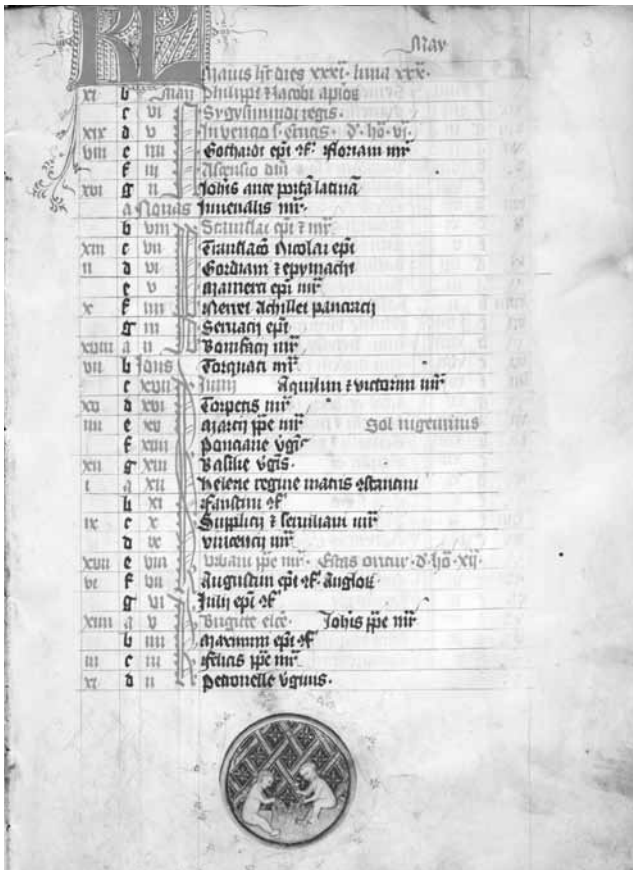 May 3
KL
Maius ht dies xxxi. luna xxx.
xi b Maii Philippi & Jacobi aplor
c vi Sygysmundi regis.
xix d v Inventio s. crucis. d. ho. vi.
viii e iiii Gothardi epi cf. floriani mr
f iii Ascensio dni
xvi g ii Johis ante porta latina
a Nonas Juvenalis mr.
b viii Stanislai epi & mr
xiii c vii Translaco Nicolai epi
ii d vi Gordiani & epymachi
e v Mamerti epi mr
x f iiii Nerei Achillei pancracii
g iii Servacii epi
xviii a ii Bonifacii mr
vii b Idus Torquati mr
c xvii Junii Aquilini & victorini mr
xv d xvi Torpetis mr
iiii e xv Marcii ppe mr Sol in geminis
f xiiii Ponciane vgis
xii g xiii Basilie vgis.
i a xii Helene regine matris
b xi Faustini cf
ix c x Supplicii & serviliani mr
d ix vincencii mr
xvii e viii Urbani ppe mr. Estas oritur. d. ho. xii.
vi f vii Augustini epi cf. anglor
g vi Julii epi cf
xiiii a v Brigitte elce. Johis ppe mr
b iiii Maximini epi cf
iii c iii Felicis ppe mr
xi d ii Petronelle vginis.